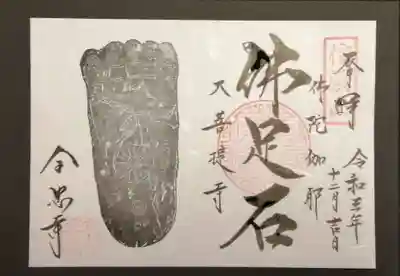 奉拝
令和三年
十二月吉日
佛陀伽耶
佛足石
大菩提寺